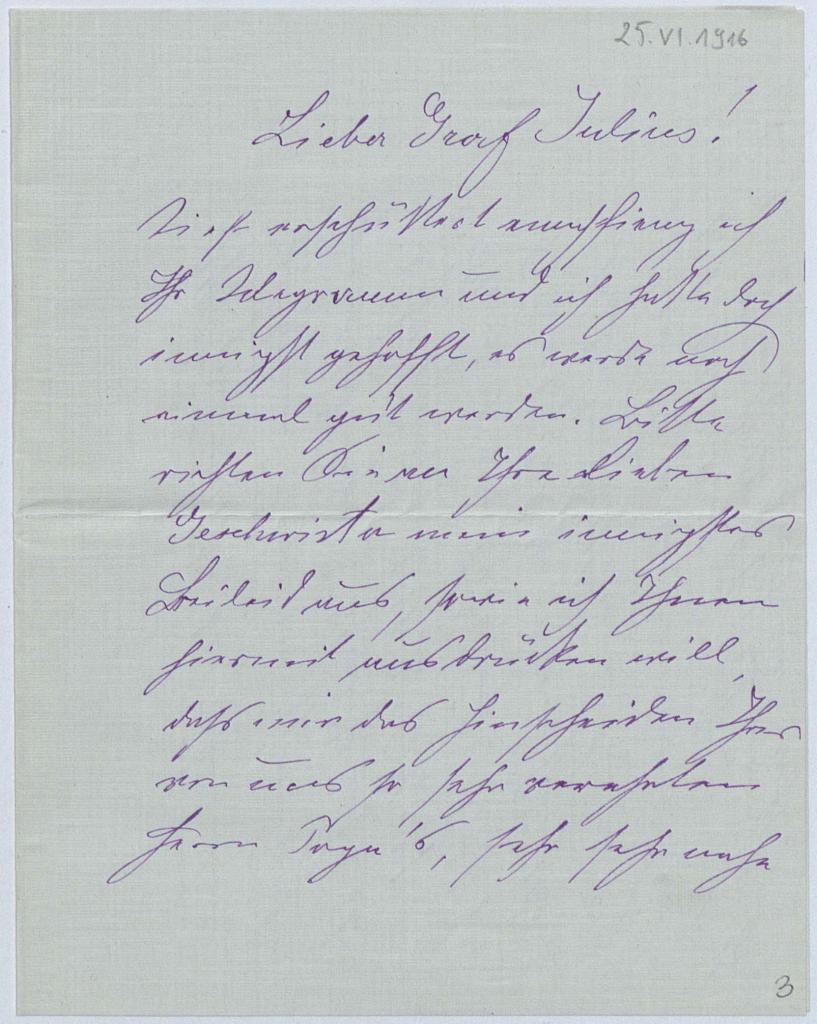 25.VI.1916
Lieber Graf Julius!
Tief erschüttert empfieng ich
Ihr Telegramm und ich hatte doch
innigst gehofft, es werde noch
einmal gut werden. Bitte
richten Sie an Ihre lieben
Geschwister mein innigstes
Beileid aus, sowie ich Ihnen
hiermit ausdrücken will,
daß mir das Hinscheiden Ihres
von uns so sehr verehrten
Herrn Papa's, sehr sehr nahe
3